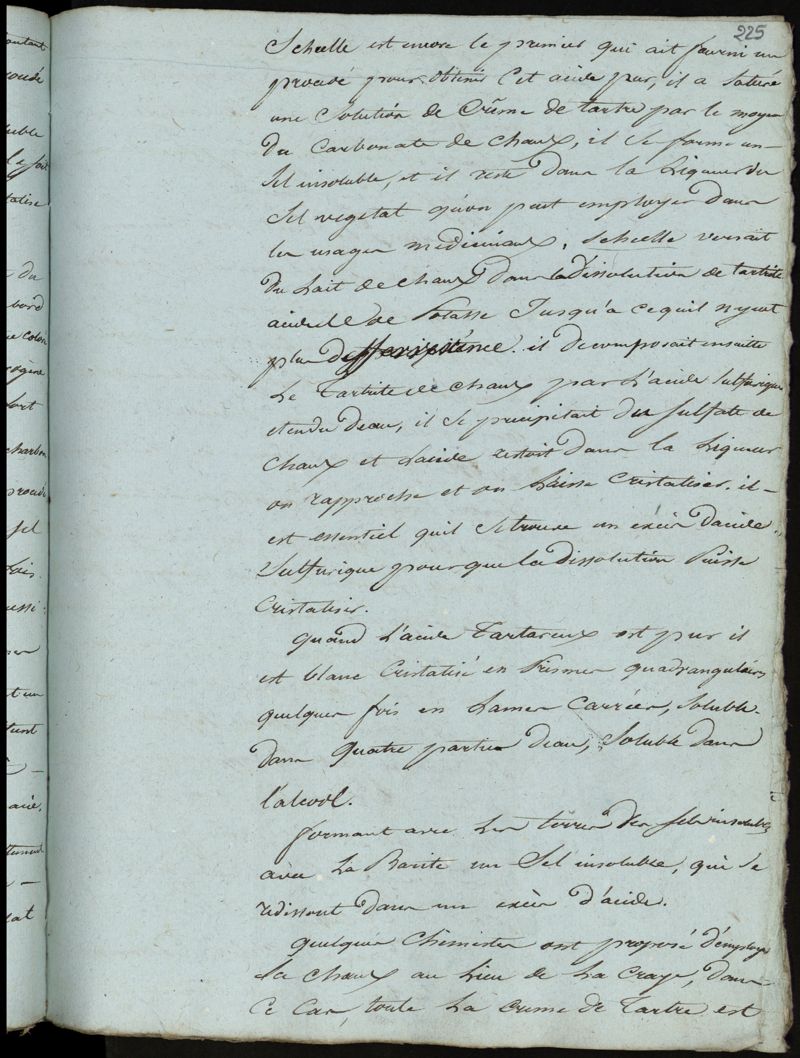 225
Scheelle est encore le premier qui ait fourni un
procédé pour obtenir Cet acide pur, il a saturé
une Solution de Crême de tartre par le moyen
du Carbonate de Chaux, il se forme un
Sel insoluble, et il reste dans la Liqueur du
Sel vegetal qu'on peut employer dans
les usages medicinaux, Scheelle versait
du Lait de chaux dans la dissolution de tartrite
acidule de Potasse Jusqu'a ce quil n'y eut
plus d'effervescence. il decomposait ensuite
Le Tartrite de chaux par L'acide Sulfurique
etendu deau, il se precipitait du Sulfate de
Chaux et L'acide restoit dans la Liqueur
on rapproche et on Laisse Cristaliser. il
est essentiel quil se trouve un excès d'acide
Sulfurique pour que la dissolution Puisse
Cristaliser.
Quand L'acide Tartareux est pur il
est blanc Cristalisé en Prismes quadrangulaires
quelques fois en Lames Carrées, Soluble
dans Quatre parties d'eau, Soluble dans
l'alcool.
formant avec Les terres des Sels insolubles
avec La Barite un Sel insoluble, qui se
redissout dans un excès d'acide.
Quelques Chimistes ont proposé d'employer
La Chaux au Lieu de La Craye, dans
Ce Cas, toute La Creme de Tartre est